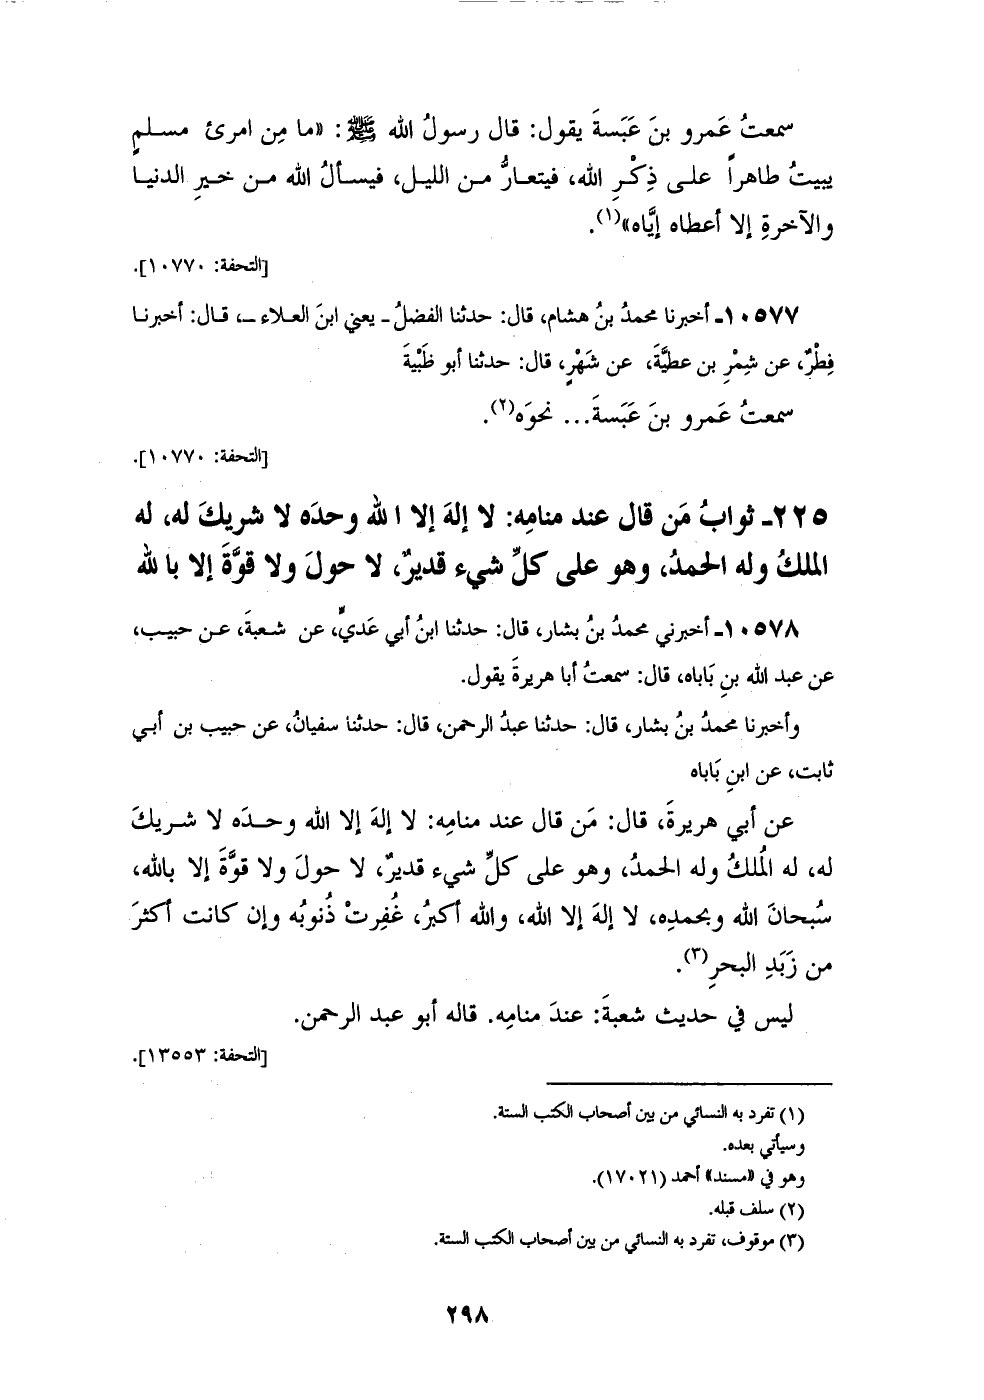 سمعتُ عَمرو بنَ عَبَسةَ يقول: قال رسولُ الله ﷺ: «ما مِن امرئ مسلمٍ
يبيتُ طاهراً على ذِكْرِ الله، فيتعارُّ من الليل، فيسألُ الله من خيرِ الدنيا
والآخرةِ إلا أعطاه إيَّاه»(١).
[التحفة: ١٠٧٧٠].
١٠٥٧٧ـ أخبرنا محمدُ بنُ هشام، قال: حدثنا الفضلُ ـ يعني ابنَ العلاء ـ، قال: أخبرنا
فِطْرٌ، عن شِمْرِ بن عطيَّةَ، عن شَهْرٍ، قال: حدثنا أبو ظَبْيةَ
سمعتُ عَمرو بنَ عَبَسةَ... نحوَه(٢).
[التحفة: ١٠٧٧٠].
٢٢٥ـ ثوابُ مَن قال عند منامِه: لا إلهَ إلا الله وحدَه لا شريكَ له، له
الملكُ وله الحمدُ، وهو على كلِّ شيء قديرٌ، لا حولَ ولا قوَّةَ إلا بالله
١٠٥٧٨ـ أخبرني محمدُ بنُ بشار، قال: حدثنا ابنُ أبي عَديٍّ، عن شعبةَ، عن حبيب،
عن عبد الله بنِ بَاباه، قال: سمعتُ أبا هريرةَ يقول.
وأخبرنا محمدُ بنُ بشار، قال: حدثنا عبدُ الرحمن، قال: حدثنا سفيانُ، عن حبيب بن أبي
ثابت، عن ابنِ بَاباه
عن أبي هريرةَ، قال: مَن قال عند منامِه: لا إلهَ إلا الله وحدَه لا شريكَ
له، له الُملكُ وله الحمدُ، وهو على كلِّ شيء قديرٌ، لا حولَ ولا قوَّةَ إلا بالله،
سُبحانَ الله وبحمدِه، لا إلهَ إلا الله، والله أكبرُ، غُفِرتْ ذُنوبُه وإن كانت أكثرَ
من زَبَدِ البحرِ(٣).
ليس في حديث شعبةَ: عندَ منامِه. قاله أبو عبد الرحمن.
[التحفة: ١٣٥٥٣].
(١) تفرد به النسائي من بين أصحاب الكتب الستة.
وسيأتي بعده.
وهو في «مسند» أحمد (١٧٠٢١).
(٢) سلف قبله.
(٣) موقوف، تفرد به النسائي من بين أصحاب الكتب الستة.
٢٩٨